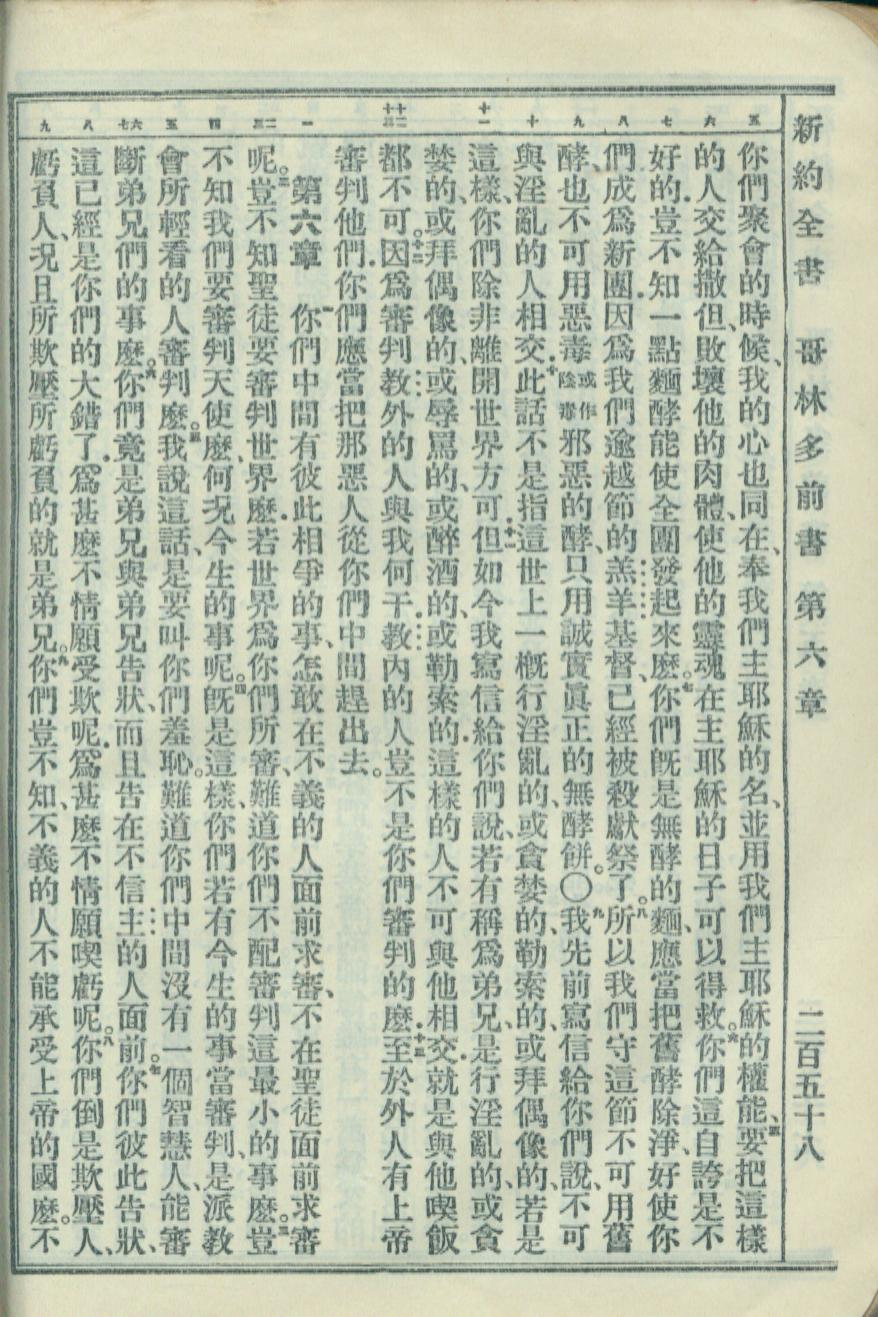 新約全書 哥林多前書 第六章 二百五十八
五 六 七 八 九 十 十一 十二 十三 一 二 三 四 五 六 七 八 九
你們聚會的時候、我的心也同在、奉我們主耶穌的名、並用我們主耶穌的權能、五要把這樣
的人交給撒但、敗壞他的肉體、使他的靈魂在主耶穌的日子可以得救。六你們這自誇是不
好的．豈不知一點麵酵能使全團發起來麼。七你們旣是無酵的麵、應當把舊酵除淨、好使你
們成爲新團．因爲我們逾越節的羔羊基督、已經被殺獻祭了。八所以我們守這節不可用舊
酵、也不可用惡毒或作陰毒邪惡的酵、只用誠實眞正的無酵餅〇九我先前寫信給你們說、不可
與淫亂的人相交．十此話不是指這世上一概行淫亂的、或貪婪的、勒索的、或拜偶像的、若是
這樣、你們除非離開世界方可．十一但如今我寫信給你們說、若有稱爲弟兄、是行淫亂的、或貪
婪的、或拜偶像的、或辱罵的、或醉酒的、或勒索的．這樣的人不可與他相交．就是與他喫飯
都不可。十二因爲審判教外的人與我何干．教內的人豈不是你們審判的麼．十三至於外人有上帝
審判他們．你們應當把那惡人從你們中間趕出去。
第六章 一你們中間有彼此相爭的事、怎敢在不義的人面前求審、不在聖徒面前求審
呢。二豈不知聖徒要審判世界麼．若世界爲你們所審、難道你們不配審判這最小的事麼。三豈
不知我們要審判天使麼、何況今生的事呢。四旣是這樣、你們若有今生的事當審判、是派教
會所輕看的人審判麼。五我說這話、是要叫你們羞恥。難道你們中間沒有一個智慧人、能審
斷弟兄們的事麼。六你們竟是弟兄與弟兄告狀、而且告在不信主的人面前。七你們彼此告狀、
這已經是你們的大錯了．爲甚麼不情願受欺呢．爲甚麼不情願喫虧呢。八你們倒是欺壓人、
虧負人、況且所欺壓所虧負的就是弟兄。九你們豈不知、不義的人不能承受上帝的國麼。不